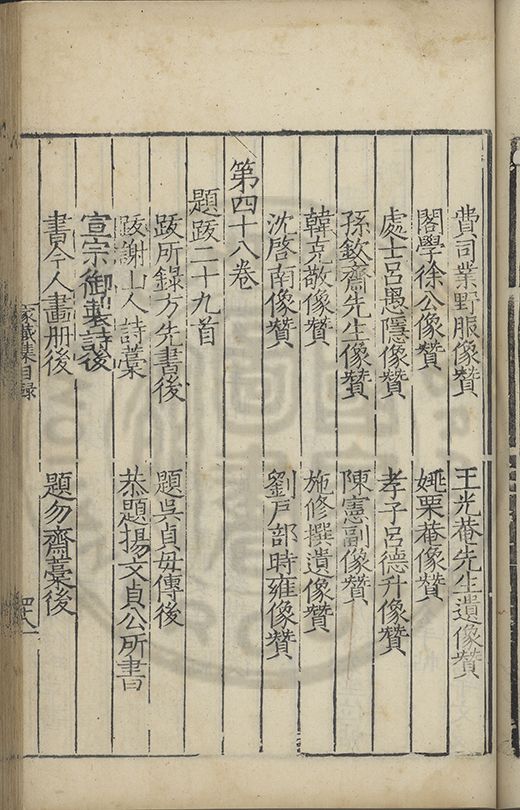 費司業野服像贊　王光菴先生遺像贊
閣學徐公像贊　姚栗菴像贊
處士呂愚隱像贊　孝子呂德升像贊
孫欽齋先生像贊　陳憲副像贊
韓克敬像贊　施修撰遺像贊
沈啓南像贊　劉戶部時雍像贊
第四十八卷
題跋二十九首
跋所錄方先書後　題吳貞母傳後
跋謝山人詩藁　恭題楊文貞公所書
宣宗御製詩後
書今人畫册後　題勿齋藁後
家藏集目録